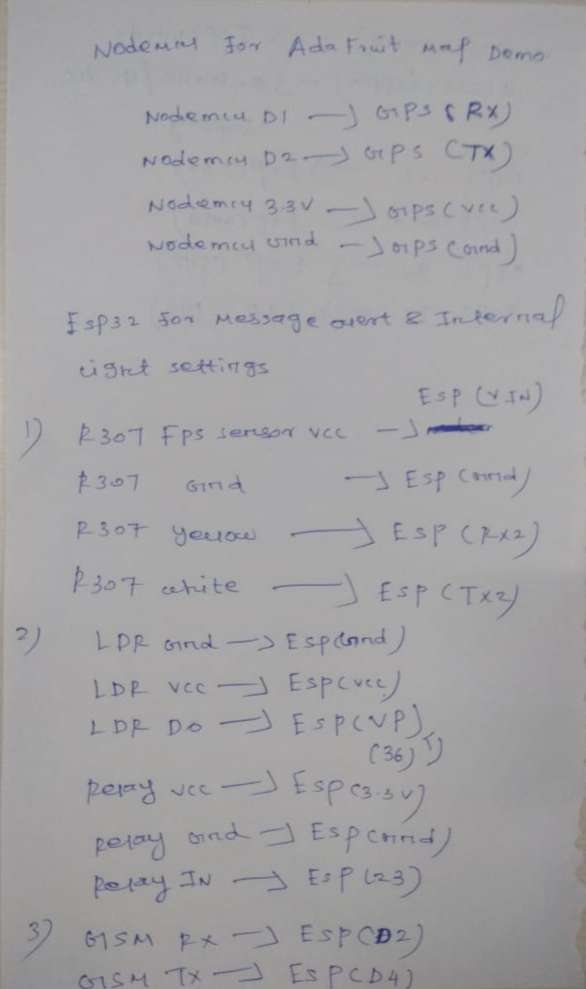 Nodemcu for AdaFruit map Demo
Nodemcu D1 → GPS (RX)
Nodemcu D2 → GPS (TX)
Nodemcu 3.3V → GPS (VCC)
Nodemcu Gnd → GPS (Gnd)
Esp32 for Message alert & Internal
light settings
Esp (VIN)
1) R307 Fps sensor vcc →
R307 Gnd → Esp (Gnd)
R307 yellow → ESP (RX2)
R307 white → ESP (TX2)
2) LDR Gnd → Esp (Gnd)
LDR vcc → Esp (vcc)
LDR DO → Esp (VP)
(36)
Relay vcc → Esp (3.3V)
Relay Gnd → Esp (Gnd)
Relay IN → Esp (23)
3) GSM RX → ESP (D2)
GSM TX → ESP (D4)